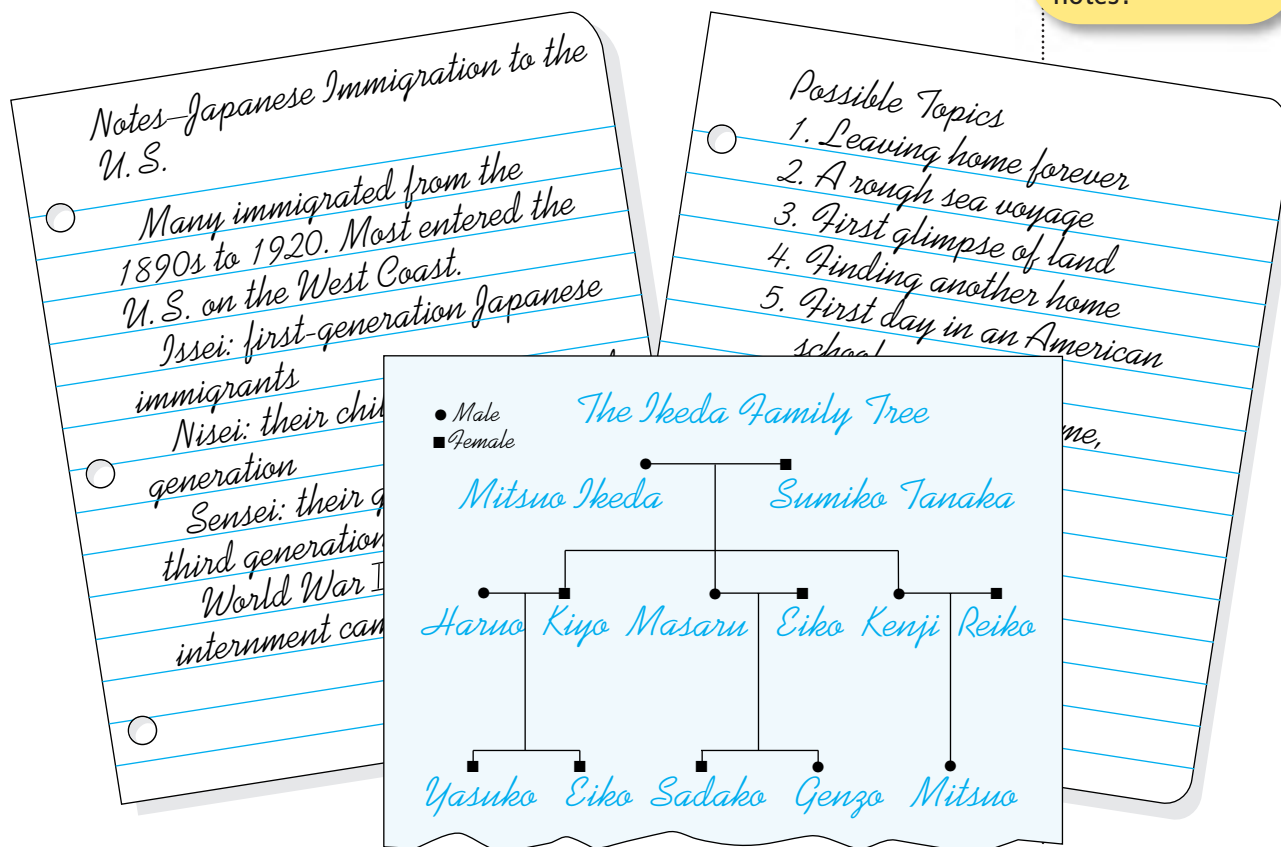 notes?
Notes—Japanese Immigration to the
U. S.
Many immigrated from the
1890s to 1920. Most entered the
U. S. on the West Coast.
Issei: first-generation Japanese
immigrants
Nisei: their
generation
Sensei: their
third generation
World War
internment
Possible Topics
1. Leaving home forever
2. A rough sea voyage
3. First glimpse of land
4. Finding another home
5. First day in an American
school
The Ikeda Family Tree
Male
Female
Mitsuo Ikeda Sumiko Tanaka
Haruo Kiyo Masaru Eiko Kenji Reiko
Yasuko Eiko Sadako Genzo Mitsuo